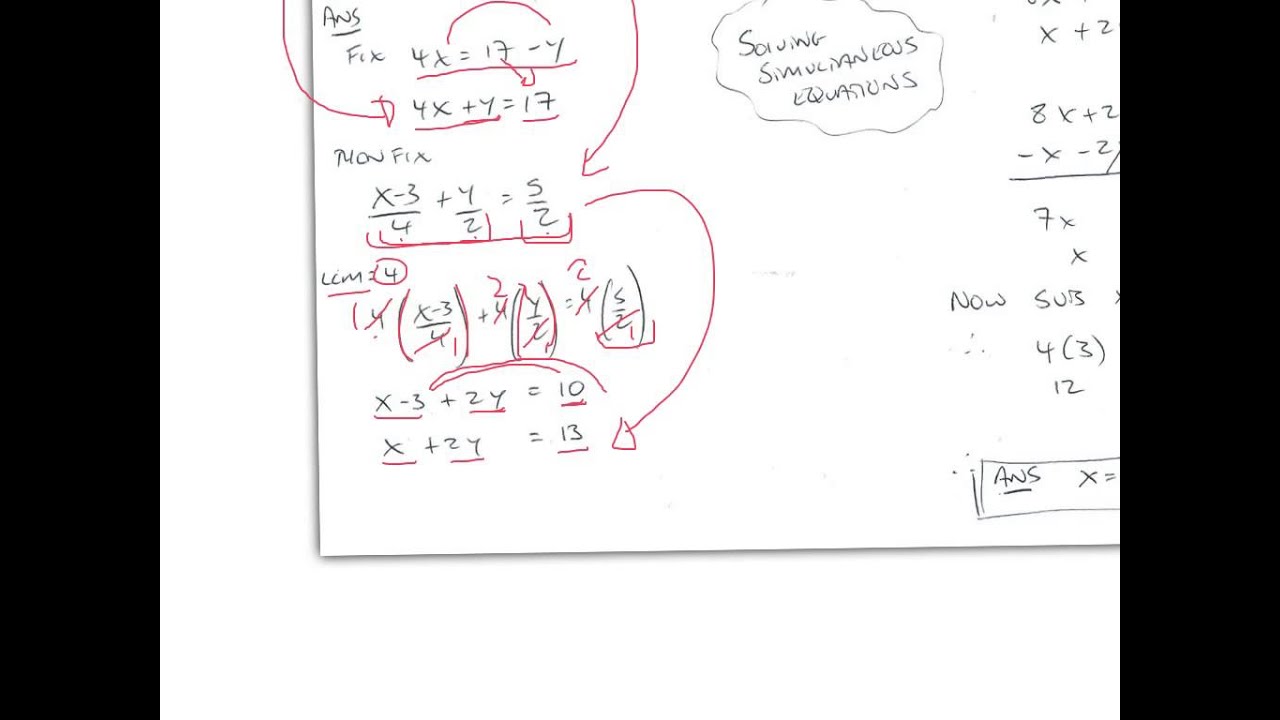 ANS
FIX 4x = 17 - y
4x + y = 17
NOW FIX
x-3/4 + y/2 = 5/2
LCM = 4
1 4(x-3/4) + 2 4(y/2) = 2 4(5/2)
x-3 + 2y = 10
x + 2y = 13
SOLVING
SIMULTANEOUS
EQUATIONS
x + 2
8x + 2
-x - 2y
7x
x
NOW SUB x
∴ 4(3)
12
∴ ANS x =